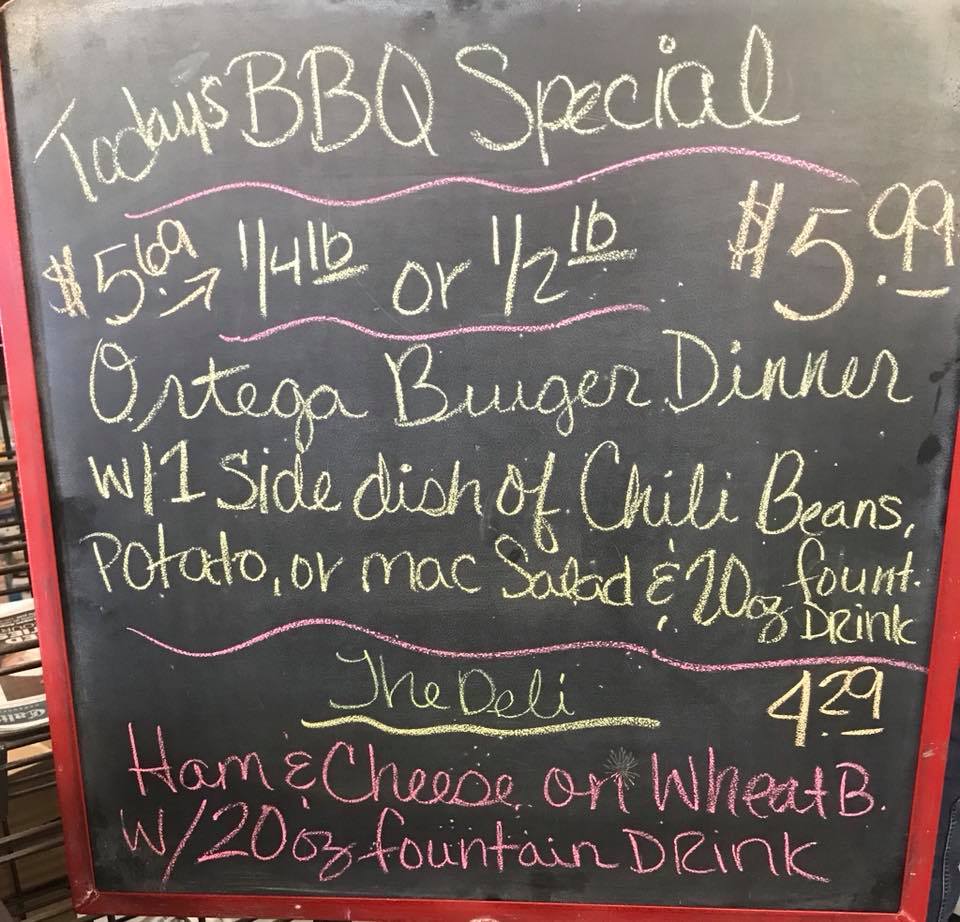 Today's BBQ Special
$5.69 → 1/4 lb or 1/2 lb $5.99
Ortega Burger Dinner
w/1 Side dish of Chili Beans,
Potato, or mac Salad & 20oz fount.
DRink
The Deli
4.29
Ham & Cheese on Wheat B.
W/20oz fountain DRink